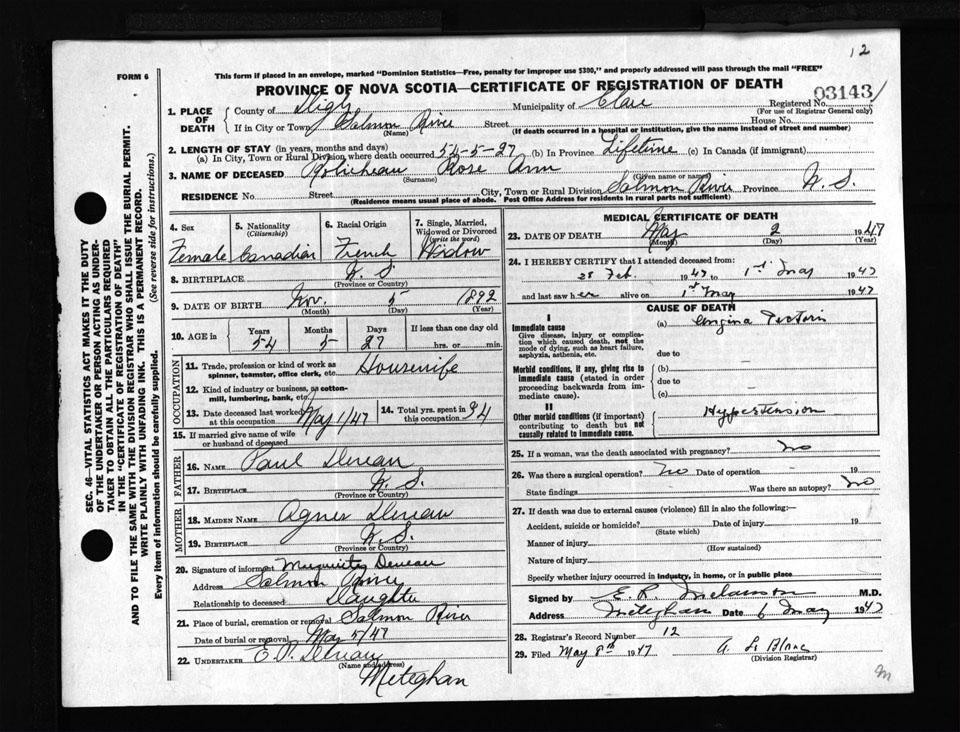 12
FORM 6
This form if placed in an envelope, marked "Dominion Statistics—Free, penalty for improper use $300," and properly addressed will pass through the mail "FREE"
PROVINCE OF NOVA SCOTIA—CERTIFICATE OF REGISTRATION OF DEATH
03143
1. PLACE OF DEATH
County of Digby Municipality of Clare Registered No.
(For use of Registrar General only)
If in City or Town Salmon River Street House No.
(Name) (If death occurred in a hospital or institution, give the name instead of street and number)
2. LENGTH OF STAY (in years, months and days)
(a) In City, Town or Rural Division where death occurred 54-5-27 (b) In Province Lifetime (c) In Canada (if immigrant)
3. NAME OF DECEASED Robicheau Rose Ann
(Surname) (Given name or names)
RESIDENCE No. Street City, Town or Rural Division Salmon River Province N.S.
(Residence means usual place of abode. Post Office Address for residents in rural parts not sufficient)
4. Sex Female
5. Nationality (Citizenship) Canadian
6. Racial Origin French
7. Single, Married, Widowed or Divorced (write the word) Widow
8. BIRTHPLACE N.S.
(Province or Country)
9. DATE OF BIRTH Nov. 5 1892
(Month) (Day) (Year)
10. AGE in Years Months Days If less than one day old
54 5 27 hrs. or min.
OCCUPATION
11. Trade, profession or kind of work as spinner, teamster, office clerk, etc. Housewife
12. Kind of industry or business, as cotton-mill, lumbering, bank, etc.
13. Date deceased last worked at this occupation May 1/47
14. Total yrs. spent in this occupation 34
15. If married give name of wife or husband of deceased
FATHER
16. NAME Paul Deveau
17. BIRTHPLACE N.S.
(Province or Country)
MOTHER
18. MAIDEN NAME Agnes Deveau
19. BIRTHPLACE N.S.
(Province or Country)
20. Signature of informant Marguerite Deveau
Address Salmon River
Relationship to deceased Daughter
21. Place of burial, cremation or removal Salmon River
Date of burial or removal May 5/47
22. UNDERTAKER E.P. Deveau
(Name and address)
Meteghan
MEDICAL CERTIFICATE OF DEATH
23. DATE OF DEATH May 2 1947
(Month) (Day) (Year)
24. I HEREBY CERTIFY that I attended deceased from:
28 Feb. 1947 to 1st May 1947
and last saw her alive on 1st May 1947
CAUSE OF DEATH
I
Immediate cause (a) Angina Pectoris
Give disease, injury or complication which caused death, not the mode of dying, such as heart failure, asphyxia, asthenia, etc.
due to
Morbid conditions, if any, giving rise to immediate cause (stated in order proceeding backwards from immediate cause). (b)
due to
(c)
II
Other morbid conditions (if important) contributing to death but not causally related to immediate cause. Hypertension
25. If a woman, was the death associated with pregnancy? No
26. Was there a surgical operation? No Date of operation 19
State findings Was there an autopsy? No
27. If death was due to external causes (violence) fill in also the following:—
Accident, suicide or homicide? Date of injury 19
(State which)
Manner of injury
(How sustained)
Nature of injury
Specify whether injury occurred in industry, in home, or in public place
Signed by E. R. Melanson M.D.
Address Meteghan Date 6 May 1947
28. Registrar's Record Number 12
29. Filed May 8th 1947 A. LeBlanc
(Division Registrar)
SEC. 46—VITAL STATISTICS ACT MAKES IT THE DUTY
OF THE UNDERTAKER OR PERSON ACTING AS UNDER-
TAKER TO OBTAIN ALL THE PARTICULARS REQUIRED
IN THE "CERTIFICATE OF REGISTRATION OF DEATH"
AND TO FILE THE SAME WITH THE DIVISION REGISTRAR WHO SHALL ISSUE THE BURIAL PERMIT.
WRITE PLAINLY WITH UNFADING INK. THIS IS A PERMANENT RECORD.
Every item of information should be carefully supplied. (See reverse side for instructions.)